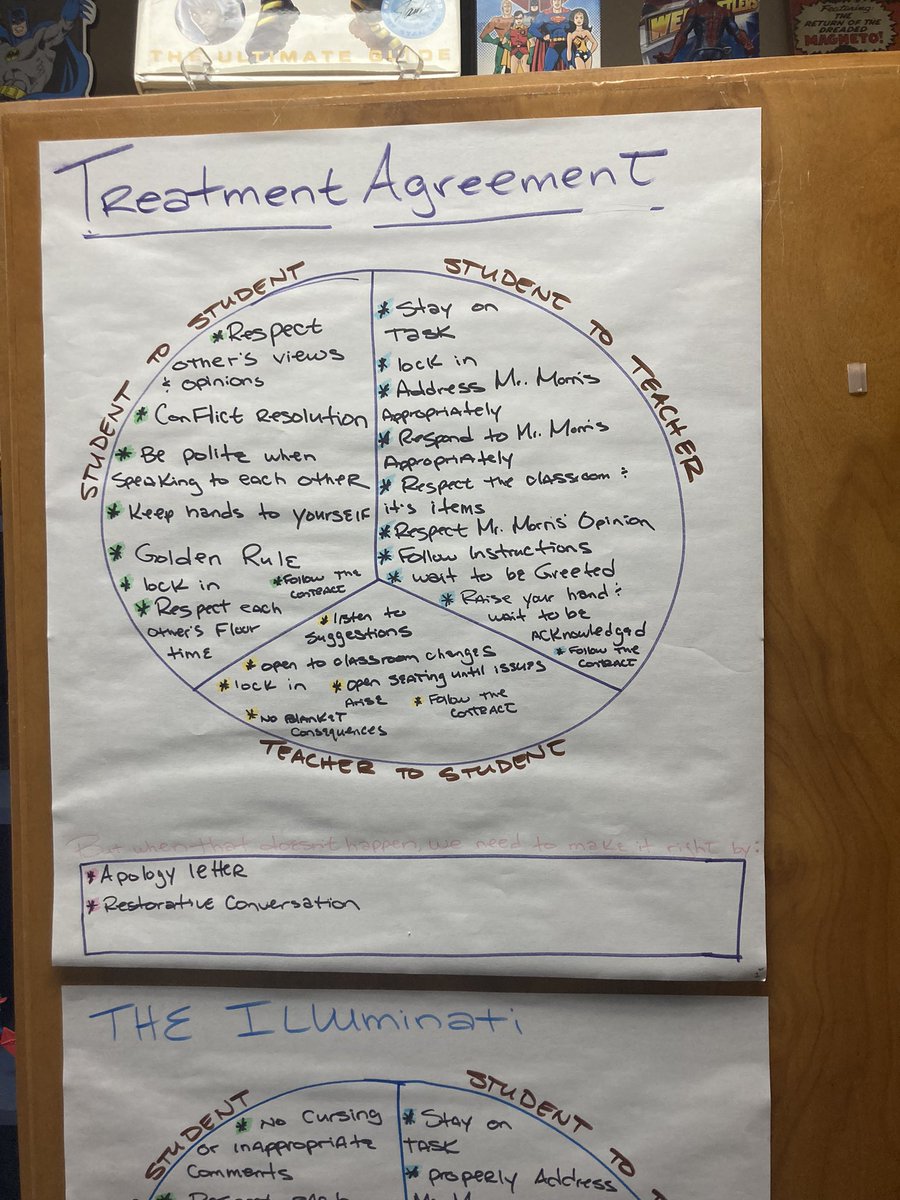 THE ULTIMATE GUIDE
WE
TLERS
Featuring:
THE
RETURN OF THE
DREADED
MAGNETO!
Treatment Agreement
STUDENT TO STUDENT
* Respect
other's views
& opinions
* Conflict Resolution
* Be polite when
speaking to each other
* Keep hands to yourself
* Golden Rule
* lock in
* Follow the
contract
* Respect each
other's floor
time
STUDENT TO TEACHER
* Stay on
Task
* lock in
* Address Mr. Morris
Appropriately
* Respond to Mr. Morris
Appropriately
* Respect the classroom &
it's items
* Respect Mr. Morris' Opinion
* Follow Instructions
* wait to be Greeted
* Raise your hand &
wait to be
Acknowledged
* Follow the
contract
* listen to
suggestions
* open to classroom changes
* lock in
* open seating until issues
arise
* No Blanket
consequences
* Follow the
contract
TEACHER TO STUDENT
But when that doesn't happen, we need to make it right by:
* Apology letter
* Restorative Conversation
THE ILLuminati
STUDENT
* No cursing
or inappropriate
comments
STUDENT TO
* Stay on
TASK
* properly Address